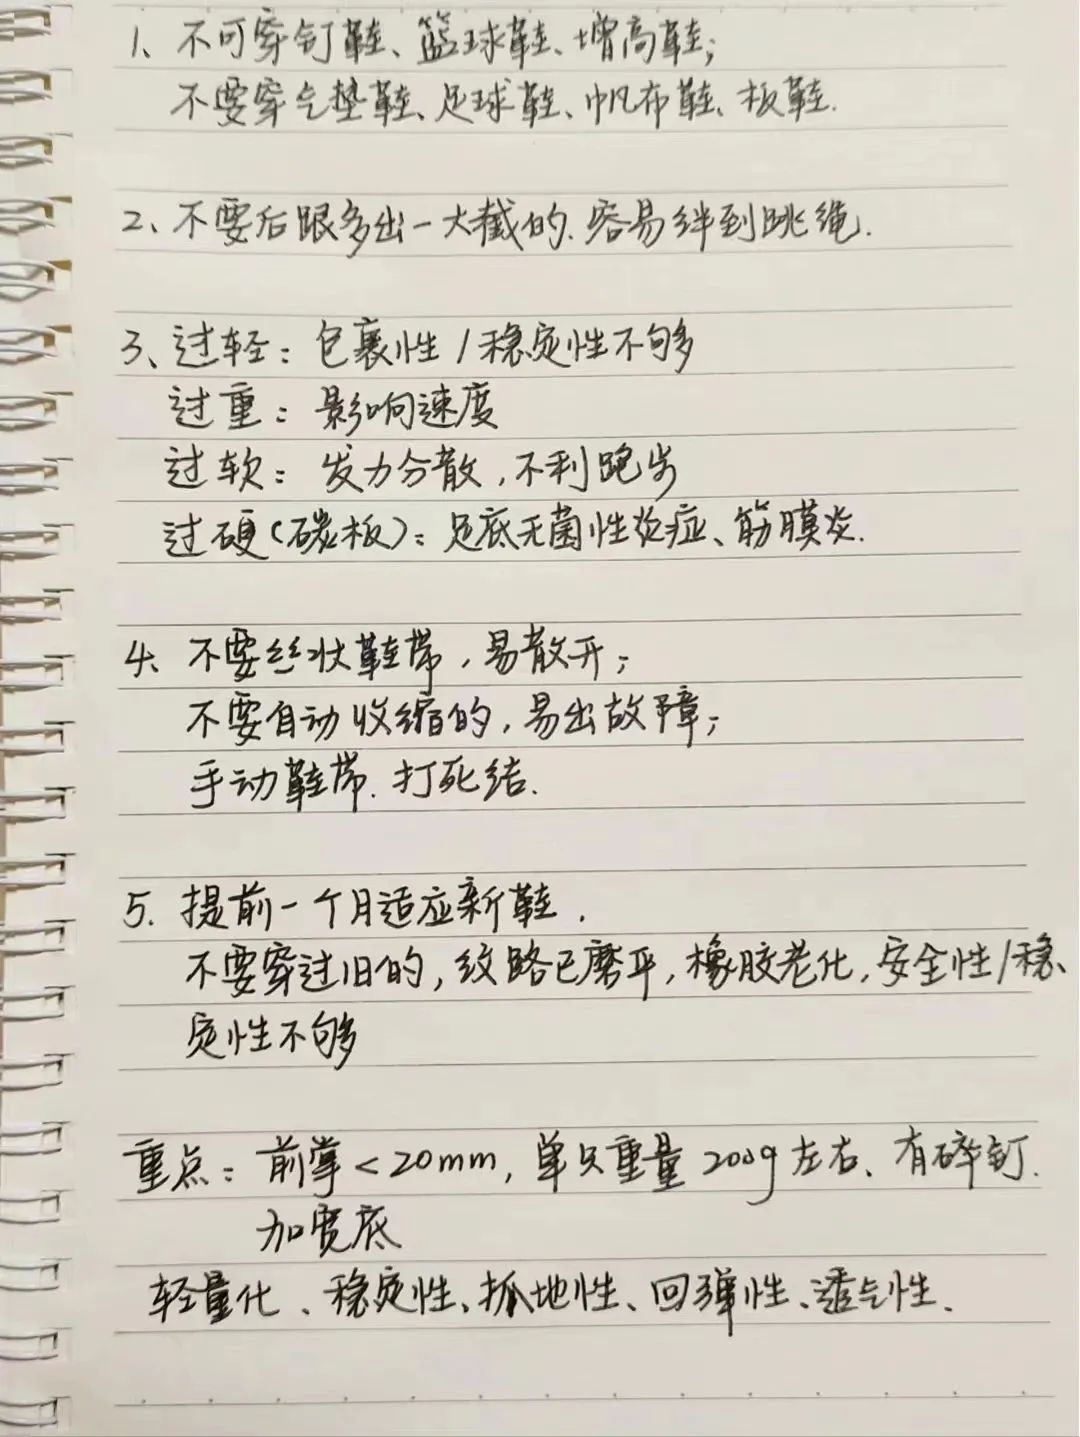 1、不可穿钉鞋、篮球鞋、增高鞋；
不要穿气垫鞋、足球鞋、帆布鞋、板鞋.
2、不要后跟多出一大截的.容易绊到跳绳.
3、过轻：包裹性/稳定性不够
过重：影响速度
过软：发力分散,不利跑步
过硬(碳板)：足底无菌性炎症、筋膜炎.
4、不要丝状鞋带,易散开；
不要自动收缩的,易出故障；
手动鞋带.打死结.
5.提前一个月适应新鞋.
不要穿过旧的,纹路已磨平,橡胶老化,安全性/稳
定性不够
重点：前掌<20mm,单只重量200g左右、有碎钉.
加宽底
轻量化、稳定性、抓地性、回弹性、透气性.